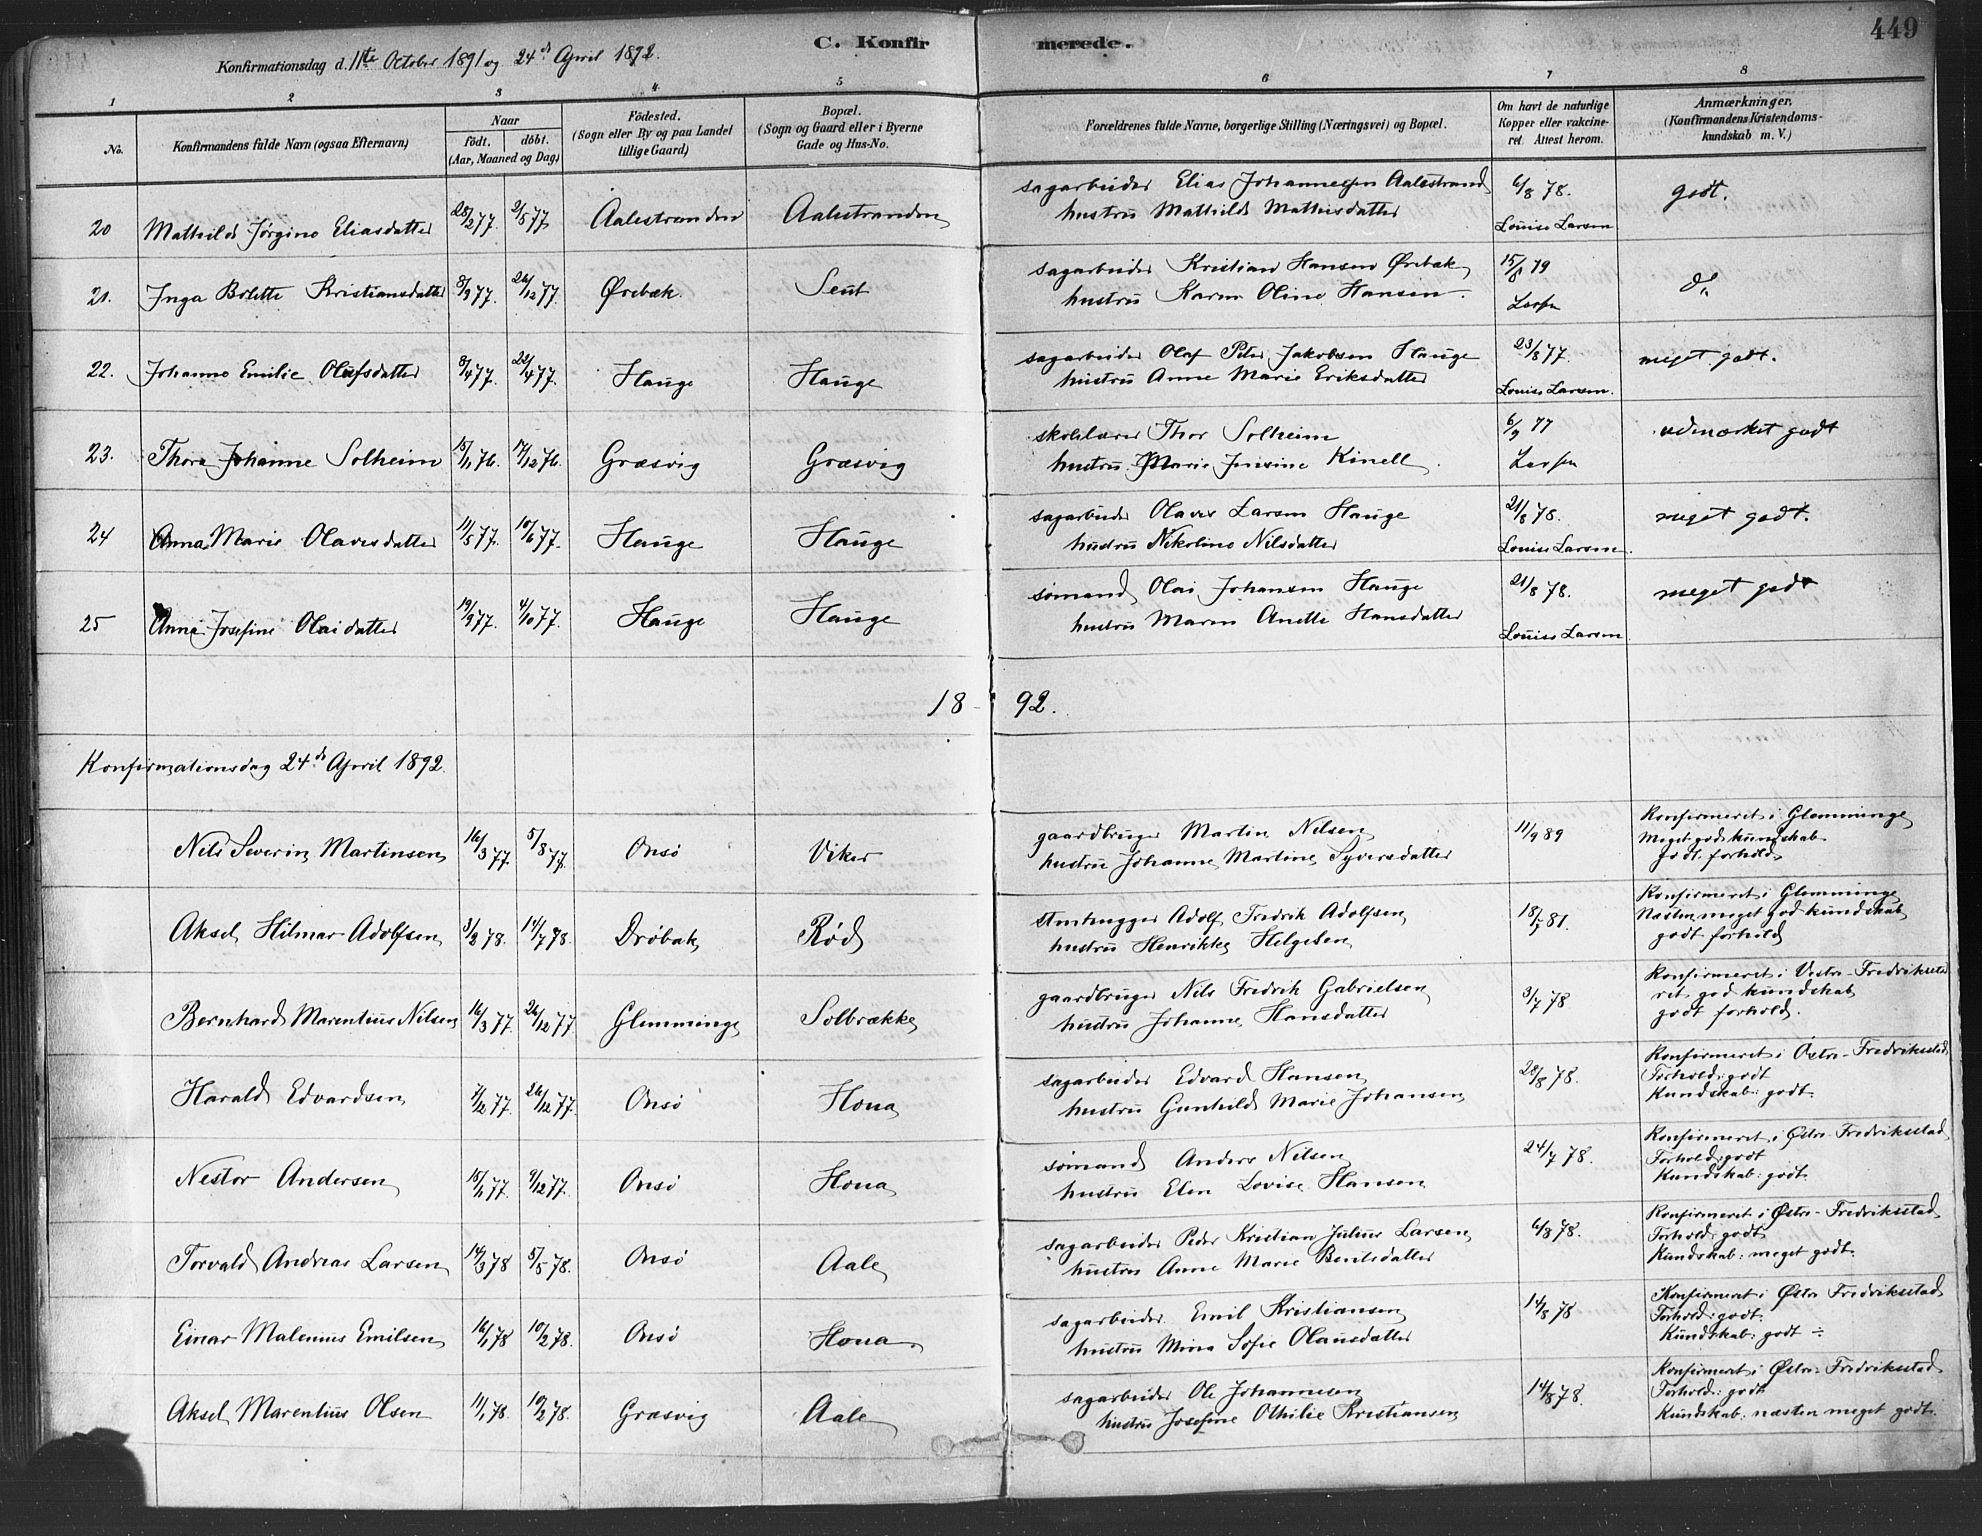 449
C. Konfirmerede.
Konfirmationsdag d. 11te October 1891 og 24de April 1892.
1 2 3 4 5 6 7 8
No.
Konfirmandens fulde Navn (ogsaa Efternavn)
Naar
født. døbt.
(Aar, Maaned og Dag)
Fødested.
(Sogn eller By og paa Landet
tillige Gaard)
Bopæl.
(Sogn og Gaard eller i Byerne
Gade og Hus-No.
Forældrenes fulde Navne, borgerlige Stilling (Næringsvei) og Bopæl.
Om havt de naturlige
Kopper eller vakcine-
ret. Attest herom.
Anmærkninger.
(Konfirmandens Kristendoms-
kundskab m. V.)
20 Mathilde Jørgine Eliasdatter 28/2 77. 2/5 77 Aalestranden Aalestranden
sagarbeider Elias Johannesen Aalestrand
hustru Mathilde Mathisdatter
6/8 78.
Louise Larsen
godt.
21. Inga Bolette Kristiansdatter 8/9 77. 26/12 77. Ørebæk. Seut
sagarbeider Kristian Hansen Ørebæk
hustru Karen Oline Hansen.
15/8 79
Larsen
do
22. Johanne Emilie Olafsdatter 8/4 77. 22/4 77. Hauge Hauge
sagarbeider Olaf Peter Jakobsen Hauge
hustru Anne Marie Eriksdatter
23/8 77.
Louise Larsen.
meget godt.
23. Thora Johanne Solheim 15/11 76. 17/12 76. Græsvig Græsvig
skolelærer Thor Solheim
hustru Marie Kinell.
6/9 77
Larsen
udmærket godt
24 Anna Marie Olavesdatter 11/5 77. 10/6 77. Hauge Hauge
sagarbeider Olaves Larsen Hauge
hustru Nikoline Nilsdatter
21/8 78.
Louise Larsen.
meget godt.
25 Anna Josefine Olaidatter 19/9 77. 4/10 77. Hauge Hauge
sømand Olai Johansen Hauge
hustru Maren Anette Hansdatter
21/8 78.
Louise Larsen
meget godt
18 92.
Konfirmationsdag 24de April 1892.
Nils Severin Martinsen 16/3 77. 5/8 77. Onsø Viker
gaardbruger Martin Nilsen
hustru Johanne Martine Syversdatter
11/9 89
Konfirmeret i Glemminge
Meget god kundskab
godt forhold
Aksel Hilmar Adolfsen 3/2 78. 14/7 78. Drøbak Rød
stenhugger Adolf Fredrik Adolfsen
hustru Henrikke Helgesen
18/7 81.
Konfirmeret i Glemminge
Næsten meget god kundskab
godt forhold
Bernhard Marentius Nilsen 16/3 77. 26/12 77. Glemminge Solbrække
gaardbruger Nils Fredrik Gabrielsen
hustru Johanne Hansdatter
3/7 78
Konfirmeret i Vestre-Fredriksstad
ret god kundskab
godt forhold.
Harald Edvardsen 7/12 77. 26/12 77. Onsø Hona
sagarbeider Edvard Hansen
hustru Gunhilde Marie Johansen
28/8 78.
Konfirmeret i Østre-Fredriksstad
Forhold: godt
Kundskab: godt.
Nestor Andersen 77. 9/12 77. Onsø Hona
sømand Anders Nilsen
hustru Elen Lovise Hansen
24/7 78.
Konfirmeret i Østre Fredriksstad
Forhold: godt
Kundskab: godt.
Torvald Andreas Larsen 14/3 78 5/5 78. Onsø Aale
sagarbeider Peder Kristian Julius Larsen
hustru Anne Marie Bentsdatter
6/8 78.
Konfirmeret i Østre-Fredriksstad
Forhold: godt
Kundskab: meget godt.
Einar Malenius Emilsen 16/1 78 10/2 78. Onsø Hona
sagarbeider Emil Kristiansen
hustru Mina Sofie Olausdatter
14/8 78
Konfirmeret i Østre Fredriksstad
Forhold: godt.
Kundskab: godt ÷
Aksel Marentius Olsen 11/1 78. 10/2 78. Græsvig Aale
sagarbeider Ole Johannesen
hustru Josefine Othilie Kristiansen
14/8 78.
Konfirmeret i Østre-Fredriksstad
Forhold: godt
Kundskab: næsten meget godt.